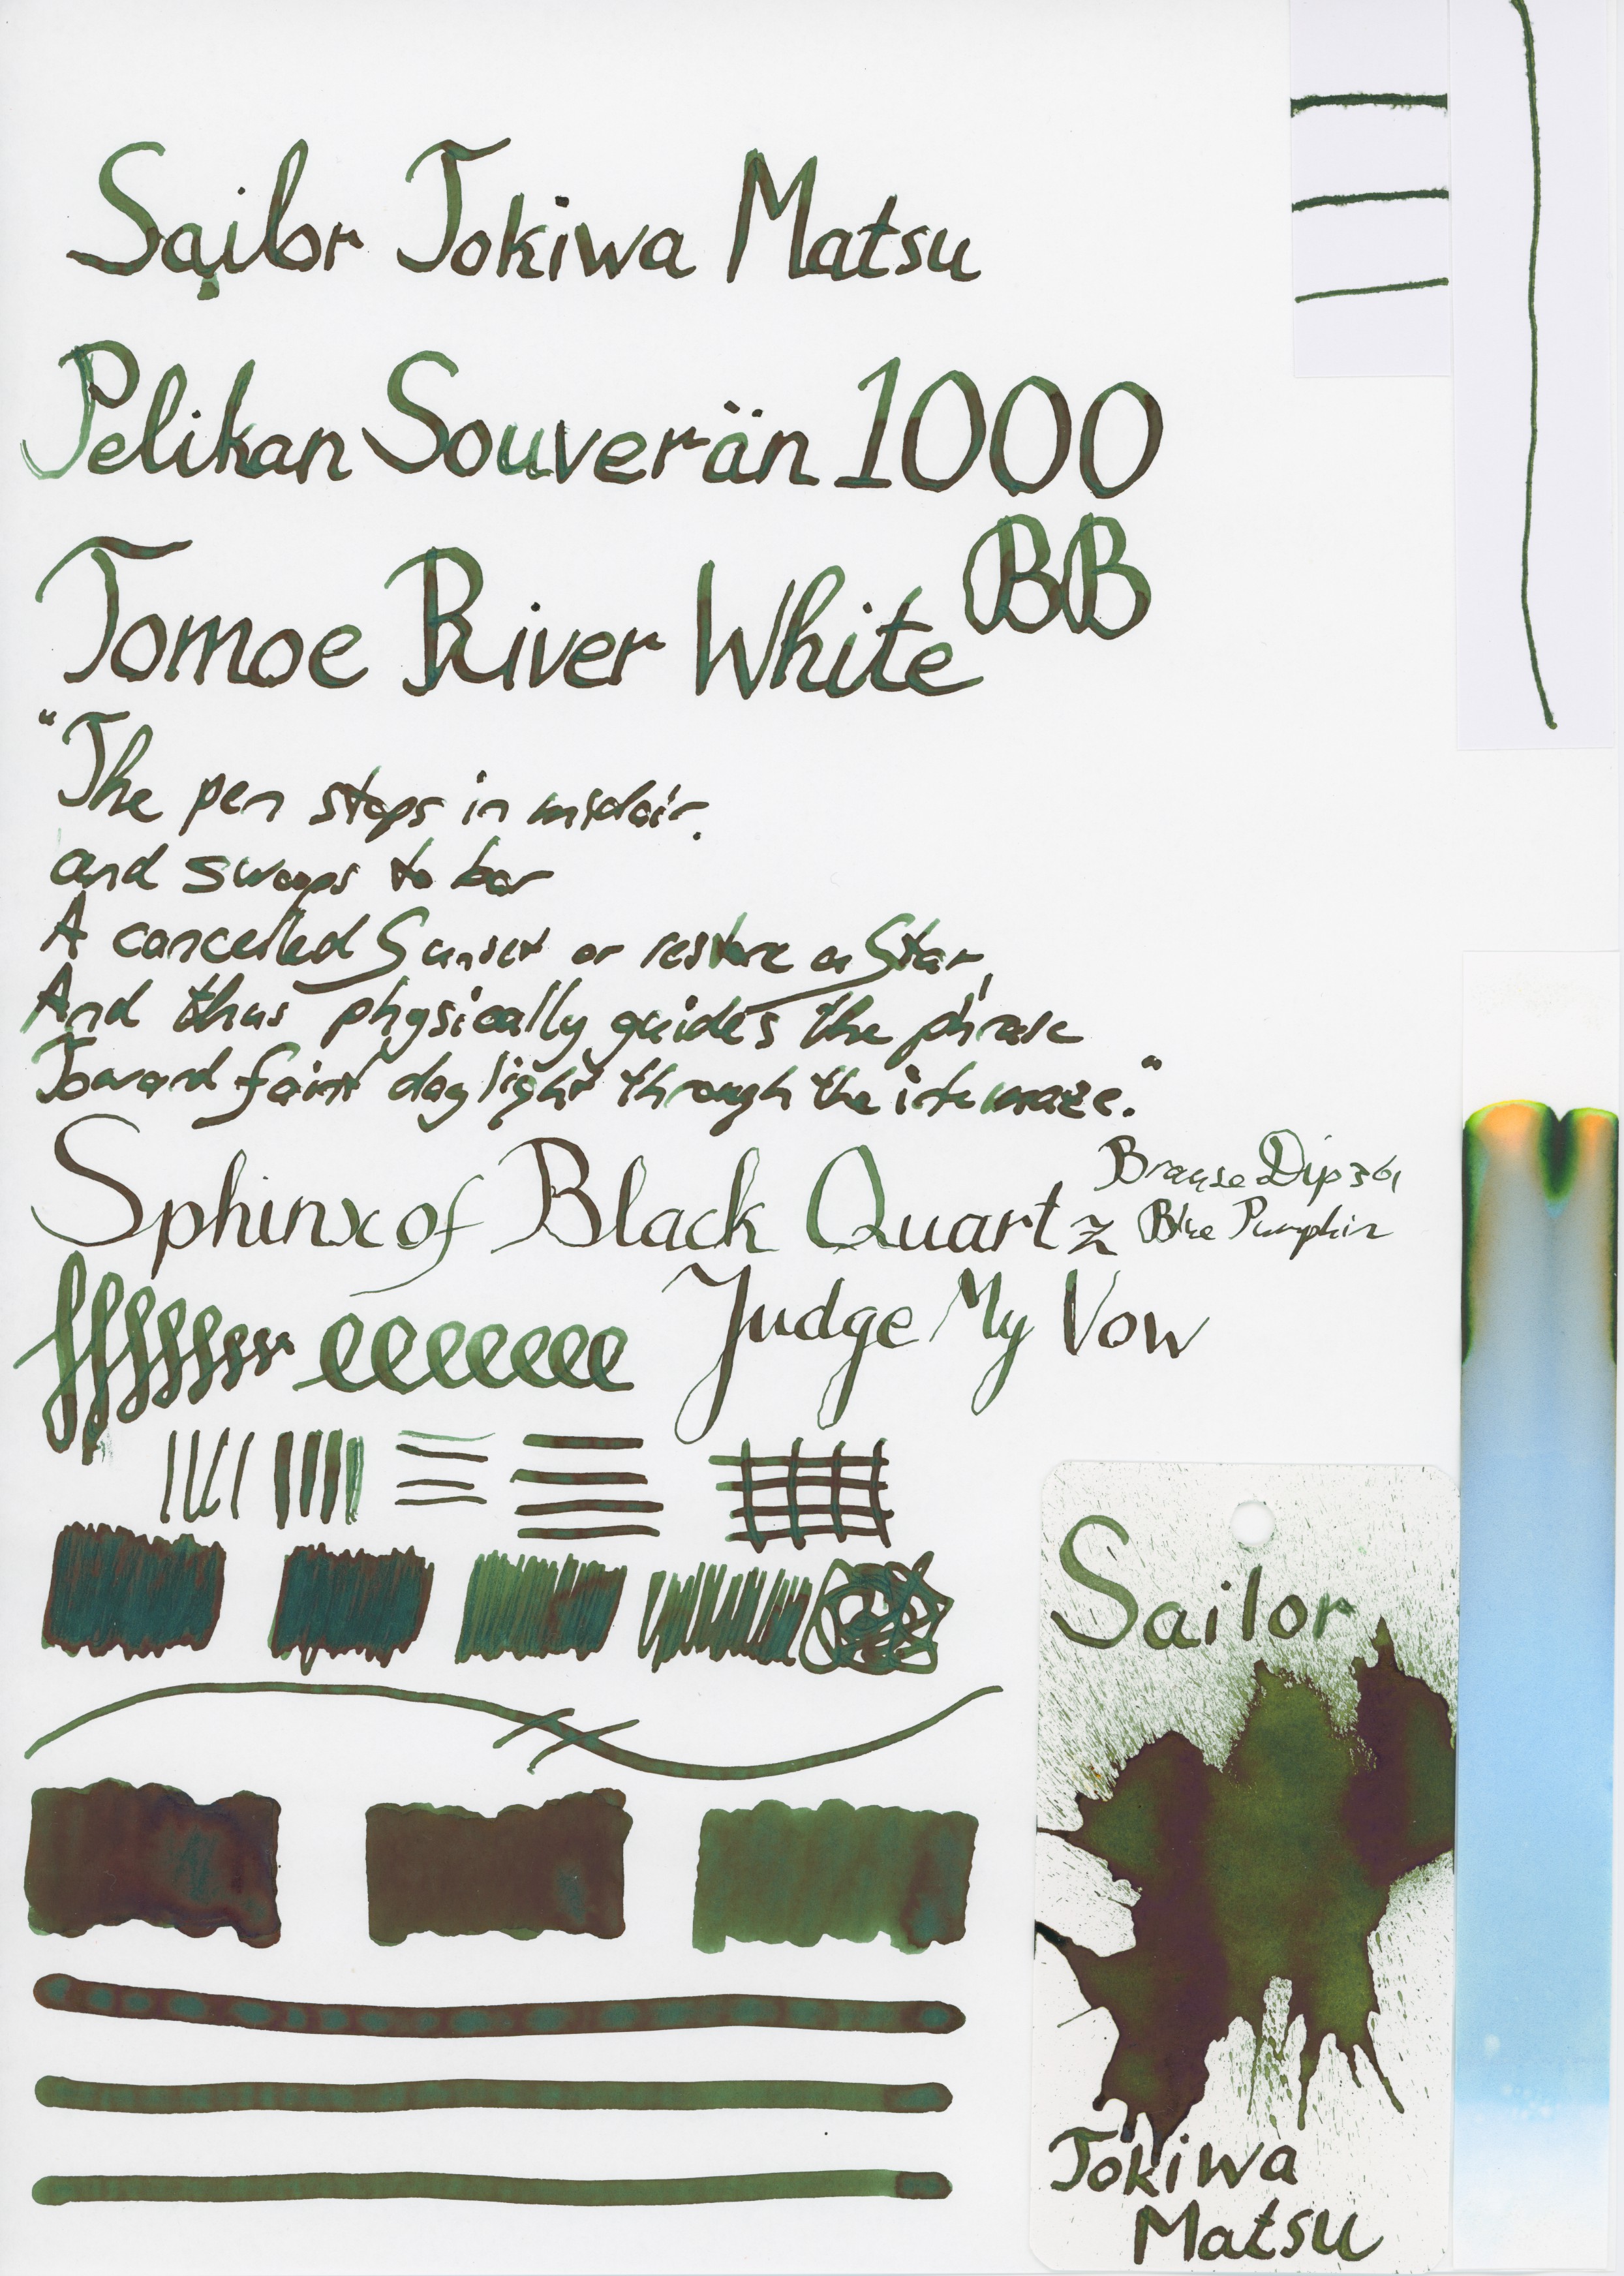 Sailor Tokiwa Matsu
Pelikan Souverän 1000
BB
Tomoe River White
"The pen stops in midair,
and swoops to bar
A cancelled Sunset or restore a Star,
And thus physically guides the phrase
Toward faint daylight through the ink maze."
Sphinx of Black Quartz
Brause Dip 361
Blue Pumpkin
Judge My Vow
fffffffff eeeeeeee
Sailor
Tokiwa
Matsu